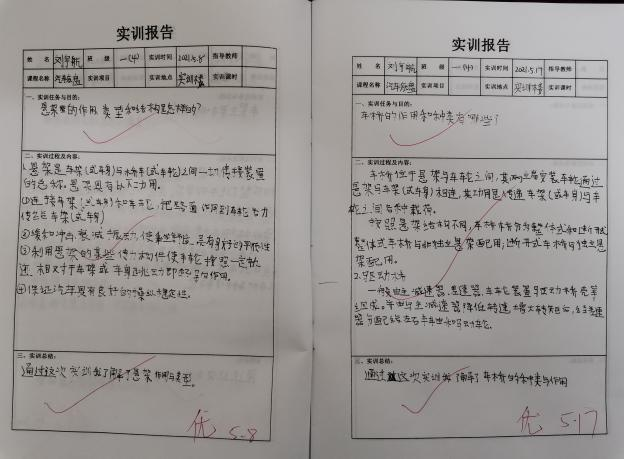 实训报告
姓 名 刘宇航 班 级 一(4) 实训时间 2021.5.8 指导教师
课程名称 汽车底盘 实训项目 实训地点 实训楼 实训课时
一、实训任务与目的:
悬架的作用 类型和结构是怎样的?
二、实训过程及内容:
1.悬架是车架(或车身)与车桥(或车轮)之间一切传接装置
的总称.悬架具有以下功用.
①连接车架(或车身)和车轮,把路面作用到车轮的力
传给车架(或车身)
②缓和冲击 衰减振动,使乘坐舒适 具有良好的平顺性
③利用悬架的某些传力构件使车轮按照一定轨
迹 相对于车架或车身跳动即起导向作用.
④保证汽车具有良好的操纵稳定性.
三、实训总结:
通过这次实训我了解了悬架作用与类型.
优 5-8
实训报告
姓 名 刘宇航 班 级 一(4) 实训时间 2021.5.17 指导教师
课程名称 汽车底盘 实训项目 实训地点 实训楼 实训课时
一、实训任务与目的:
车桥的作用和种类有哪些?
二、实训过程及内容:
车桥位于悬架与车轮之间,其两端安装车轮通过
悬架与车架(或车身)相连,其功用是传递车架(或车身)与车
轮之间各种载荷.
按照悬架结构不同,车桥分为整体式和断开式
整体式车桥与非独立悬架配用,断开式车桥与独立悬
架配用.
2.驱动桥
一般由主减速器,差速器,车轮 装置与驱动桥壳等
组成.
三、实训总结:
通过这次实训我了解了车桥的种类与作用
优 5-17